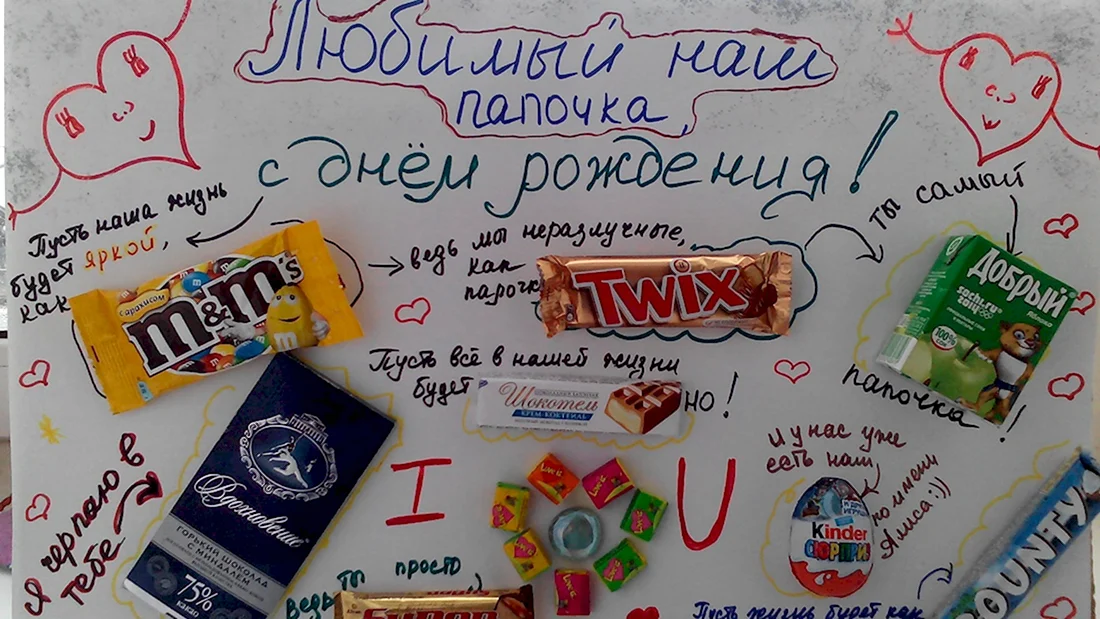 Любимый наш
папочка,
с днём рождения!
Пусть наша жизнь
будет яркой,
как
с арахисом
m&m's
ведь мы неразлучные,
как
парочка
TWIX
ты самый
Добрый
sochi.ru
2014
яблоко
100%
папочка!
Пусть всё в нашей жизни
будет
Шокотель
КРЕМ-КОКТЕЙЛЬ
но!
Я черпаю в
тебе
Вдохновение
ГОРЬКИЙ ШОКОЛАД
С МИНДАЛЕМ
75%
какао
I
Love is
Love is
U
И у нас уже
есть наш
по имени
Алиса:))
Kinder
СЮРПРИЗ
BOUNTY
ведь
ты просто
Пусть жизнь будет как